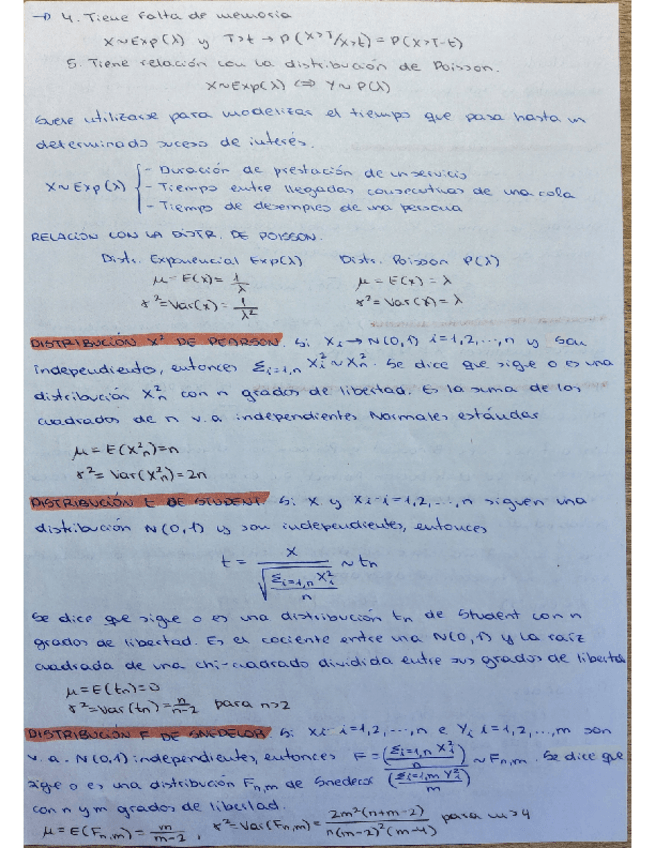 → 4. Tiene falta de memoria
X~Exp(λ) y T>t → P(X>T/X>t) = P(X>T-t)
5. Tiene relación con la distribución de Poisson.
X~Exp(λ) ⇔ Y~P(λ)
Suele utilizarse para modelizar el tiempo que pasa hasta un
determinado suceso de interés.
X~Exp(λ) { - Duración de prestación de un servicio
- Tiempo entre llegadas consecutivas de una cola
- Tiempo de desempleo de una persona
RELACIÓN CON LA DISTR. DE POISSON.
Distr. Exponencial Exp(λ) Distr. Poisson P(λ)
μ = E(x) = 1/λ μ = E(x) = λ
σ² = Var(x) = 1/λ² σ² = Var(x) = λ
DISTRIBUCIÓN X² DE PEARSON. Si Xi → N(0,1) i=1,2,...,n y son
independientes, entonces Σi=1,n Xi² ~ Xn². Se dice que sigue o es una
distribución X²n con n grados de libertad. Es la suma de los
cuadrados de n v.a. independientes Normales estándar
μ = E(X²n) = n
σ² = Var(X²n) = 2n
DISTRIBUCIÓN t DE STUDENT. Si X y Xi - i=1,2,...,n siguen una
distribución N(0,1) y son independientes, entonces
t = X / √(Σi=1,n Xi² / n) ~ tn
Se dice que sigue o es una distribución tn de Student con n
grados de libertad. Es el cociente entre una N(0,1) y la raíz
cuadrada de una chi-cuadrado dividida entre sus grados de libertad
μ = E(tn) = 0
σ² = Var(tn) = n/n-2 para n>2
DISTRIBUCIÓN F DE SNEDECOR. Si Xi - i=1,2,...,n e Yi i=1,2,...,m son
v.a. N(0,1) independientes, entonces F = (Σi=1,n Xi² / n) / (Σi=1,m Yi² / m) ~ Fn,m. Se dice que
sigue o es una distribución Fn,m de Snedecor
con n y m grados de libertad.
μ = E(Fn,m) = m/m-2, σ² = Var(Fn,m) = 2m²(n+m-2) / n(m-2)²(m-4) para m>4